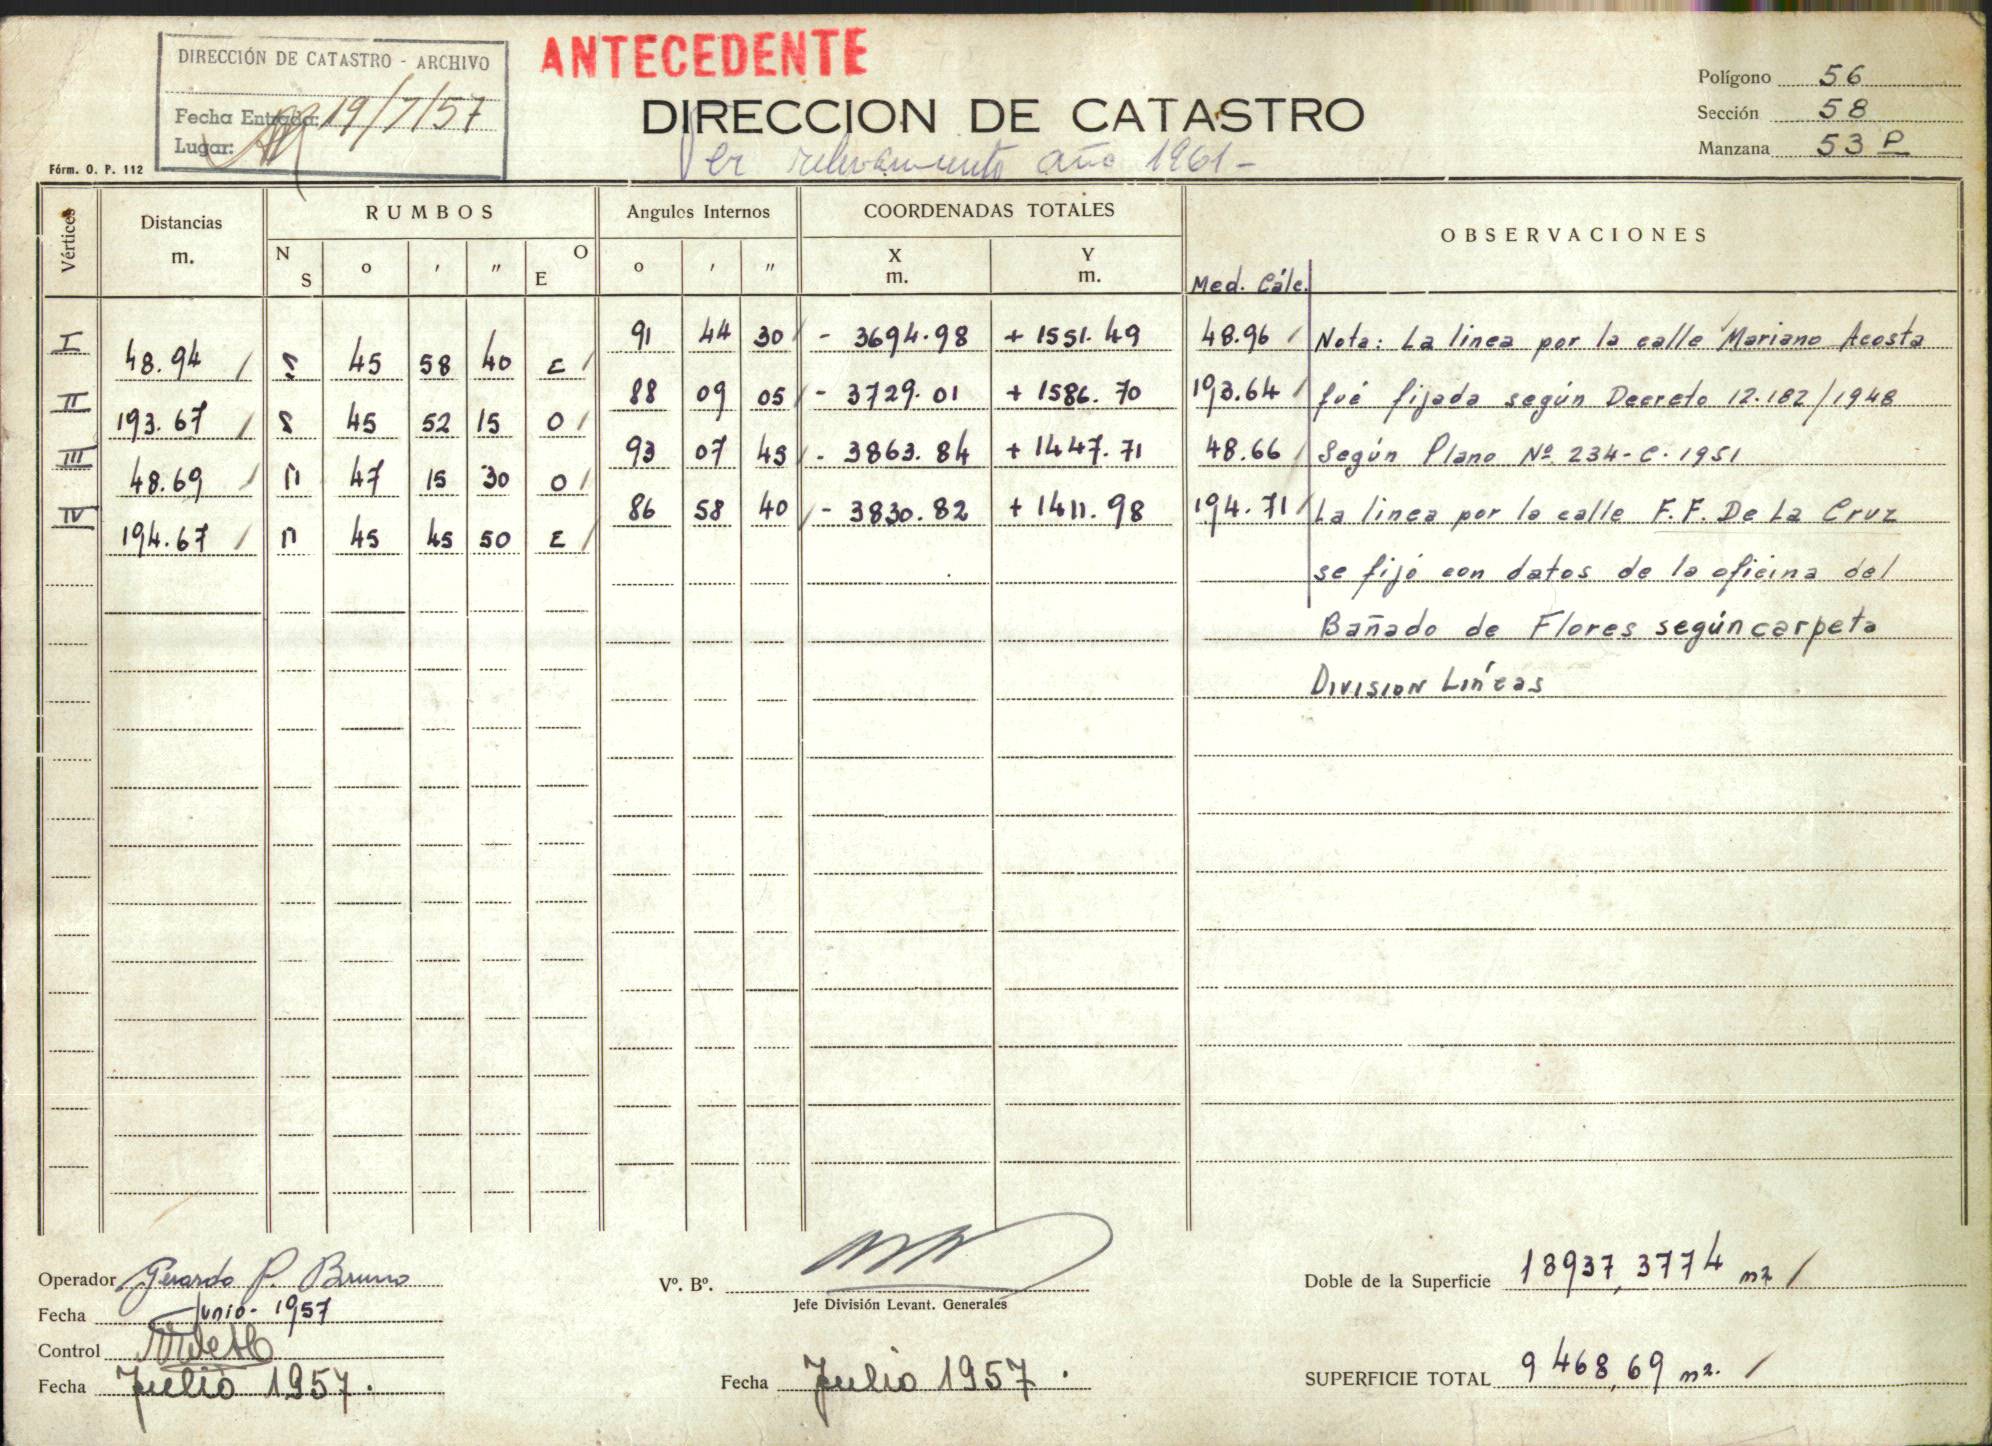 DIRECCIÓN DE CATASTRO - ARCHIVO
Fecha Entrada: 19/7/57
Lugar:
ANTECEDENTE
DIRECCION DE CATASTRO
Ver relevamiento año 1961-
Polígono 56
Sección 58
Manzana 53 P
Fórm. O. P. 112
Vértices
Distancias m.
RUMBOS
N S o ' " E O
Angulos Internos
o ' "
COORDENADAS TOTALES
X m. Y m.
OBSERVACIONES
Med. Cálc.
I 91 44 30 - 3694.98 + 1551.49 48.96 Nota: La linea por la calle Mariano Acosta
48.94 S 45 58 40 E
II 88 09 05 - 3729.01 + 1586.70 193.64 fué fijada según Decreto 12.182/1948
193.67 S 45 52 15 O
III 93 07 45 - 3863.84 + 1447.71 48.66 Según Plano Nº 234-C-1951
48.69 N 47 15 30 O
IV 86 58 40 - 3830.82 + 1411.98 194.71 La linea por la calle F.F. De La Cruz
194.67 N 45 45 50 E
se fijó con datos de la oficina del
Bañado de Flores según carpeta
Division Líneas
Operador Gerardo P. Bruno
Fecha Junio- 1957
Control
Fecha Julio 1957.
Vº. Bº.
Jefe División Levant. Generales
Fecha Julio 1957.
Doble de la Superficie 18937,3774 m2
SUPERFICIE TOTAL 9468,69 m2.